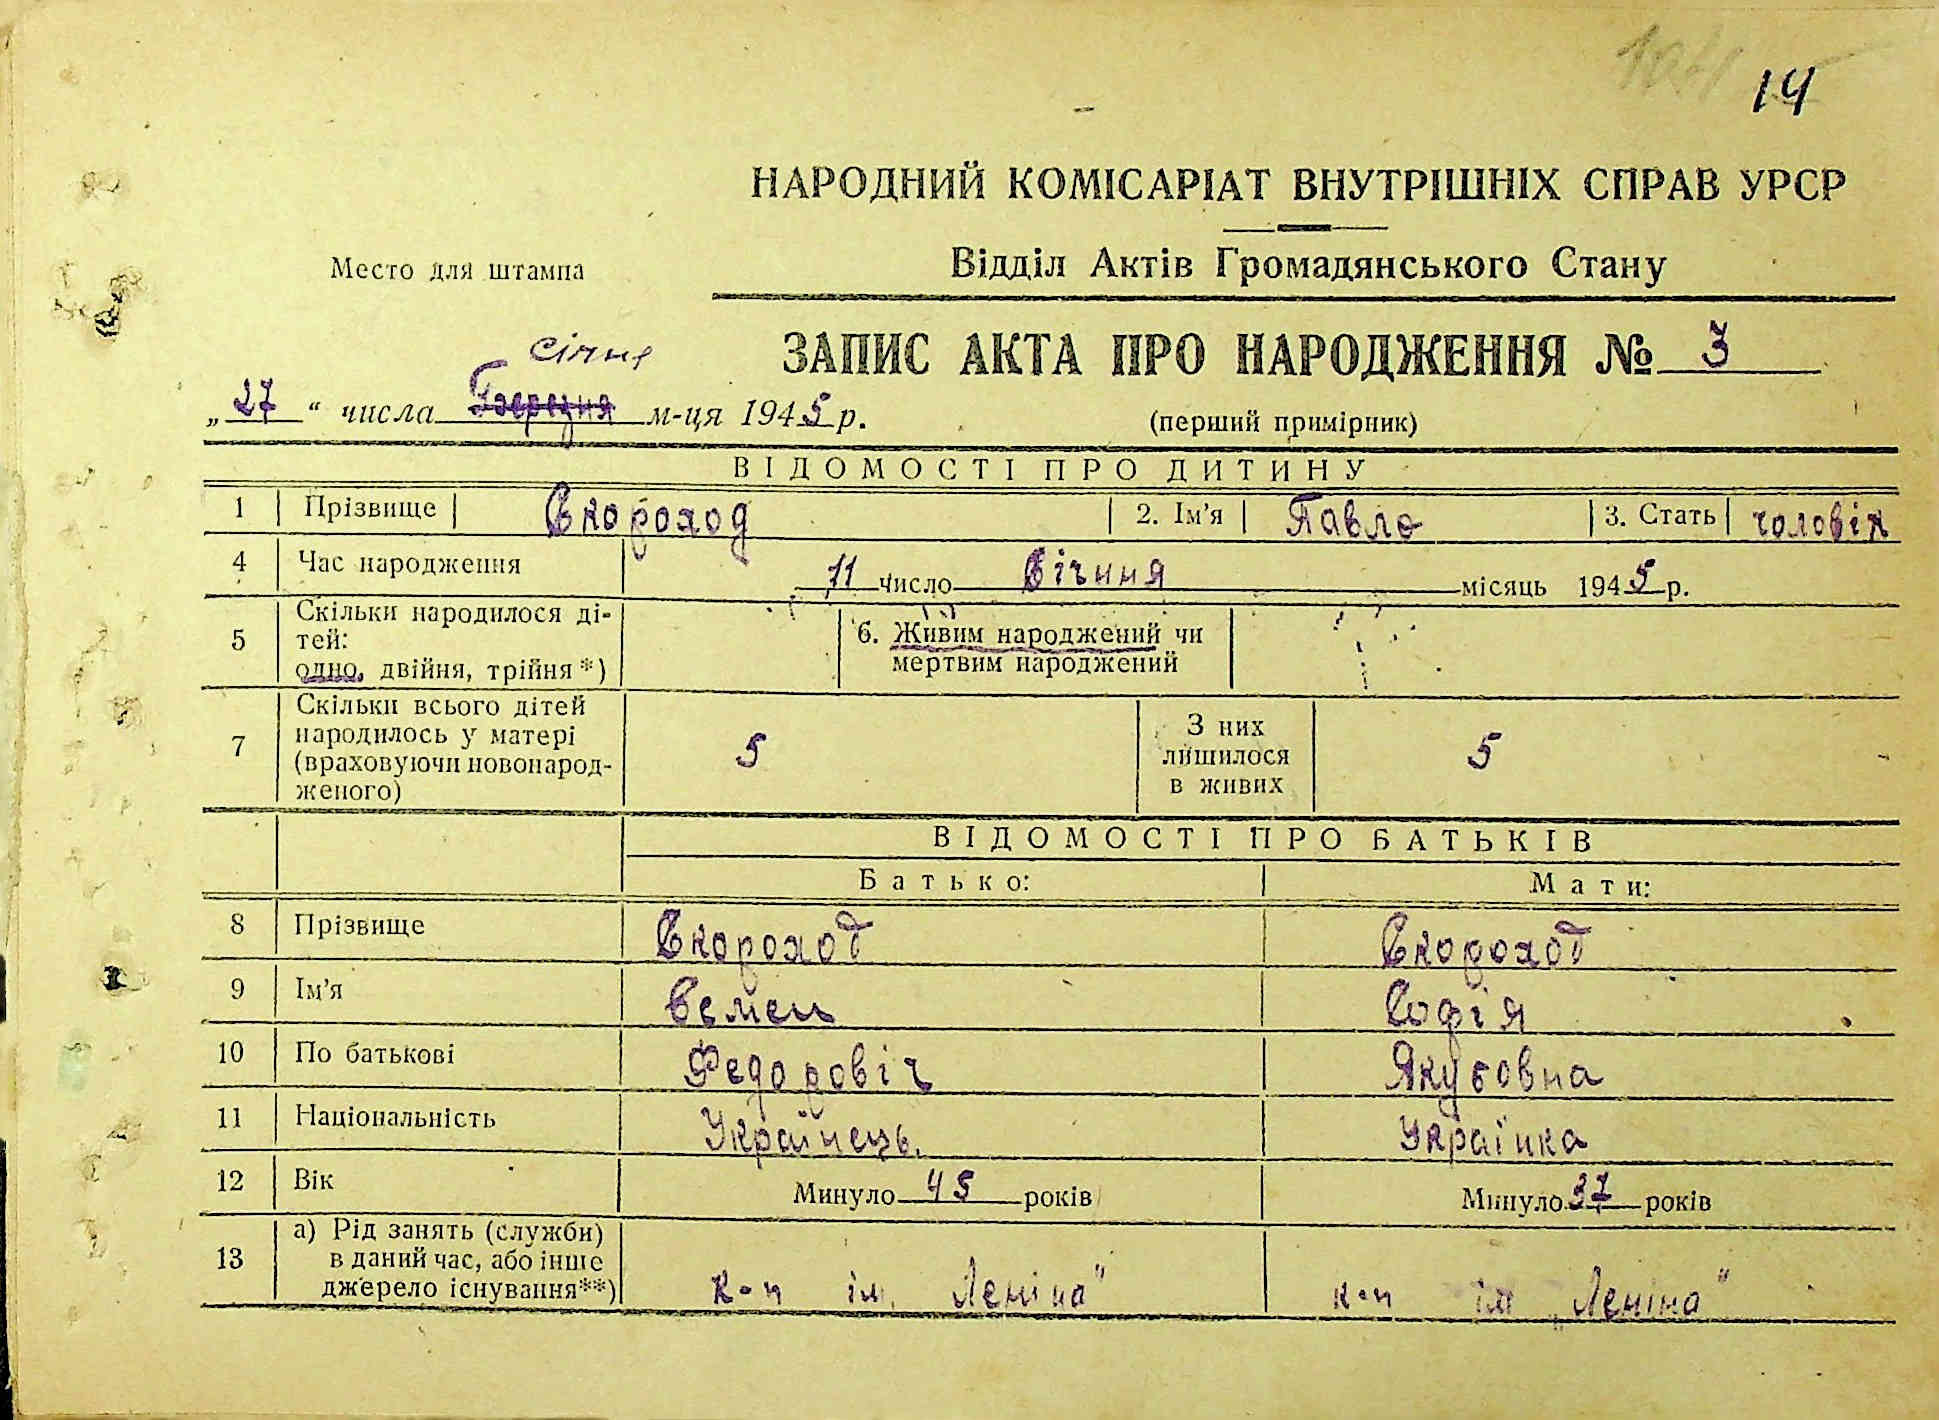 14
НАРОДНИЙ КОМІСАРІАТ ВНУТРІШНІХ СПРАВ УРСР
Відділ Актів Громадянського Стану
Место для штампа
ЗАПИС АКТА ПРО НАРОДЖЕННЯ № 3
січня
„27“ числа Березня м-ця 1945 р.
(перший примірник)
ВІДОМОСТІ ПРО ДИТИНУ
1 Прізвище Скороход 2. Ім'я Павло 3. Стать чоловік
4 Час народження 11 число Січння місяць 1945 р.
5 Скільки народилося ді-
тей:
одно, двійня, трійня*)
6. Живим народжений чи
мертвим народжений
7 Скільки всього дітей
народилось у матері
(враховуючи новонарод-
женого)
5
З них
лишилося
в живих
5
ВІДОМОСТІ ПРО БАТЬКІВ
Батько: Мати:
8 Прізвище Скороход Скороход
9 Ім'я Семен Софія
10 По батькові Федоровіч Якубовна
11 Національність Українець. Українка
12 Вік Минуло 45 років Минуло 37 років
13 а) Рід занять (служби)
в даний час, або інше
джерело існування**)
к-п ім. Леніна" к-п ім „Леніна"